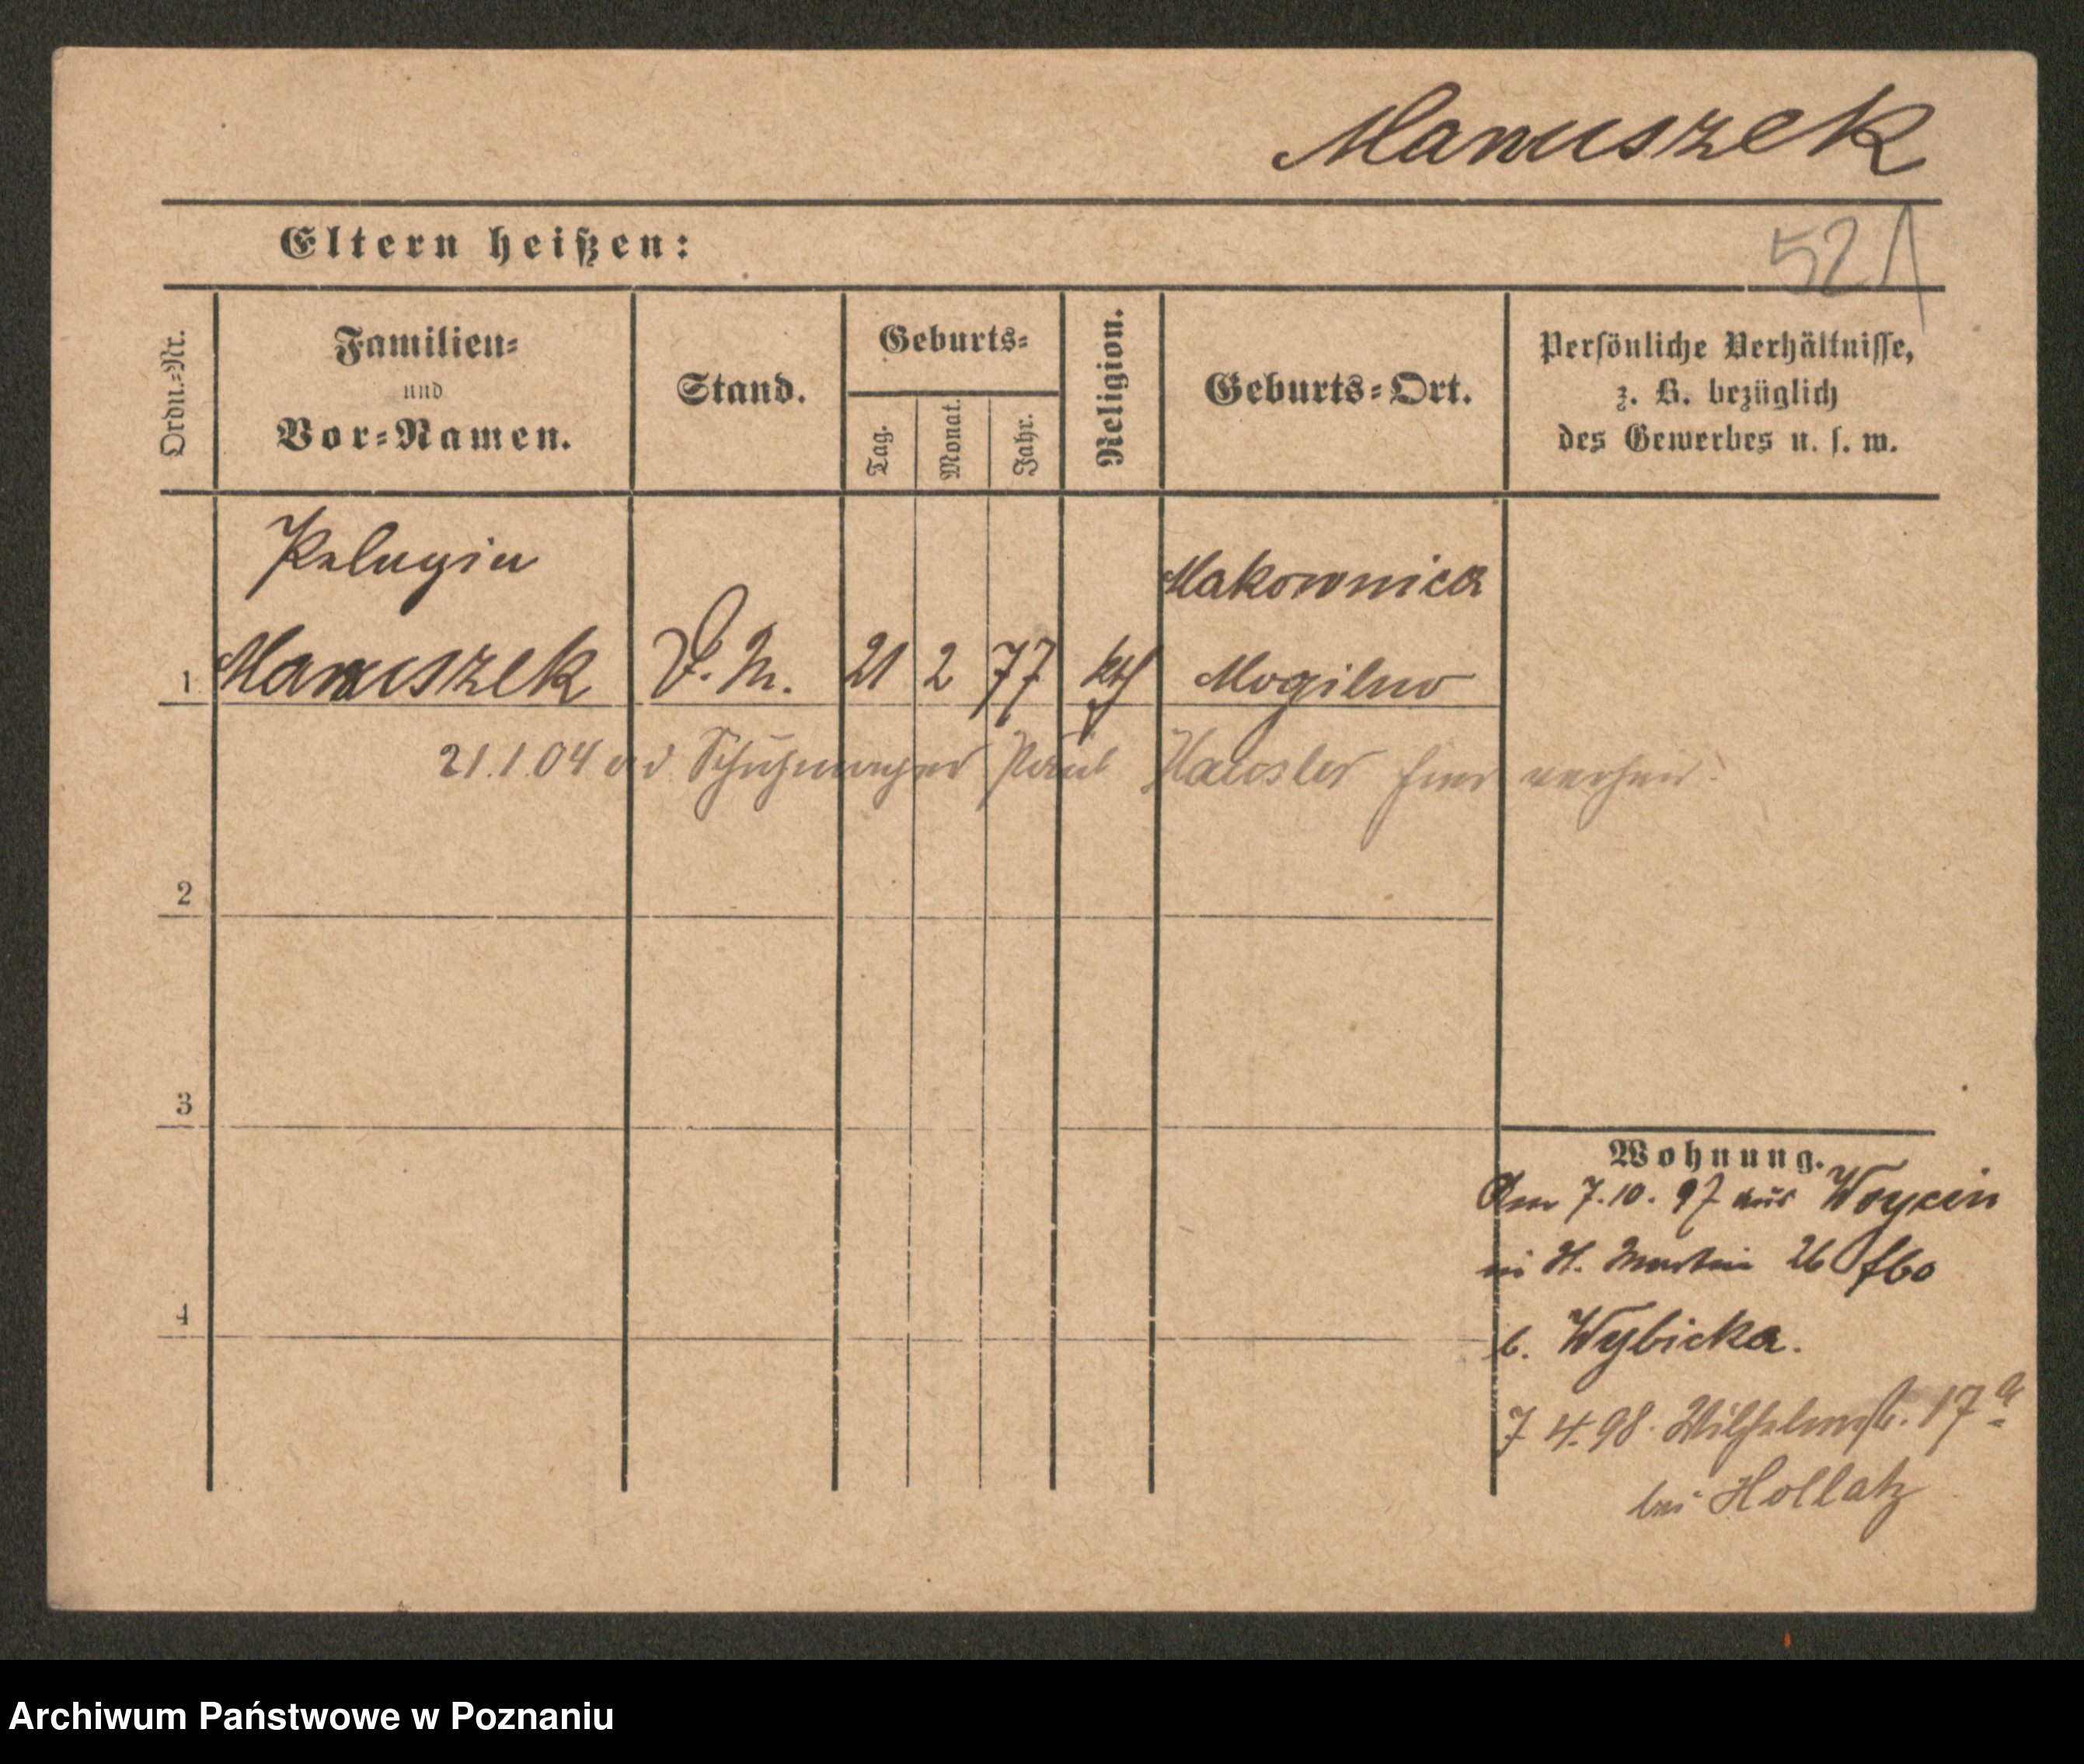 Manuszek
Eltern heißen:
521
Ordn.=Nr.
Familien=
und
Vor=Namen.
Stand.
Geburts=
Tag.
Monat.
Jahr.
Religion.
Geburts=Ort.
Persönliche Verhältnisse,
z. B. bezüglich
des Gewerbes u. s. w.
Pelagia
Makownica
1 Manuszek D. M. 21 2 77 kth Mogilno
21.1.04 Paul Haeusler hier verheir.
2
3
4
Wohnung.
Am 7.10.97 aus Woycin
St. Martin 26
b. Wybicka.
7 4. 98. Wilhelmstr. 17 a
bei Hollatz
Archiwum Państwowe w Poznaniu